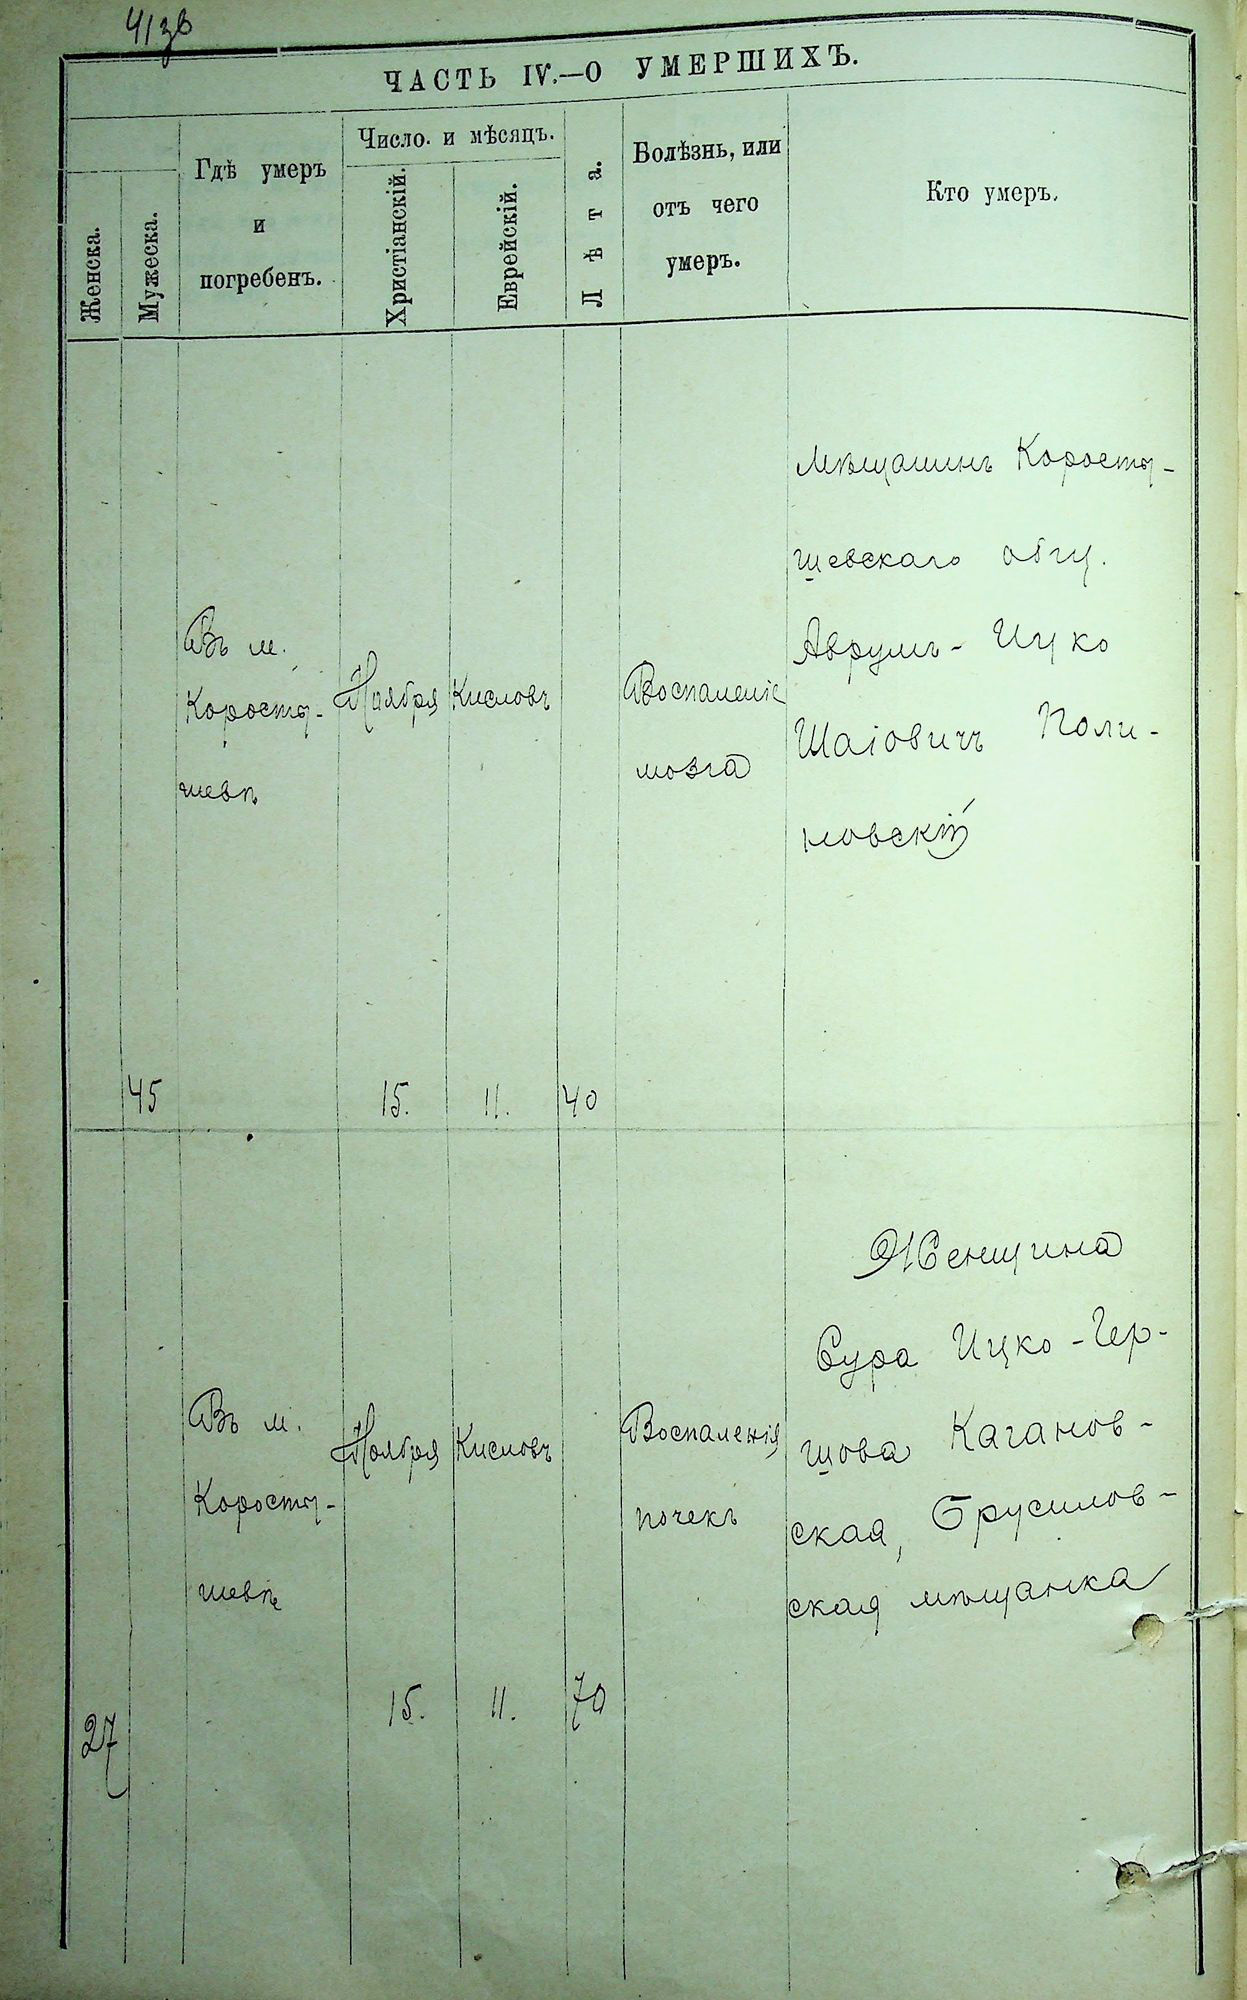 ЧАСТЬ IV.—О УМЕРШИХЪ.
Женска.
Мужеска.
Гдѣ умеръ
и
погребенъ.
Число. и мѣсяцъ.
Христіанскій.
Еврейскій.
Лѣта.
Болѣзнь, или
отъ чего
умеръ.
Кто умеръ.
45
Въ м.
Коросты-
шевѣ
Ноября
15.
Кисловъ
11.
40
Воспаленіе
мозга
Мѣщанинъ Коросты-
шевскаго общ.
Аврумъ-Ицко
Шаіовичъ Поли-
новскій
27
Въ м.
Коросты-
шевѣ
Ноября
15.
Кисловъ
11.
70
Воспаленія
почекъ
Женщина
Сура Ицко-Гер-
шова Каганов-
ская, Брусилов-
ская мѣщанка